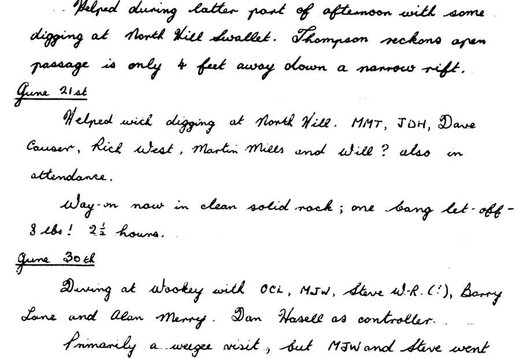 Helped during latter part of afternoon with some
digging at North Hill Swallet. Thompson reckons open
passage is only 4 feet away down a narrow rift.
June 21st
Helped with digging at North Hill. MMT, JDH, Dave
Causer, Rich West, Martin Mills and Will? also in
attendance.
Way-on now in clean solid rock; one bang let-off -
8 lbs! 2½ hours.
June 30th
Diving at Wookey with OCL, MJW, Steve W-R. (!), Barry
Lane and Alan Merry. Dan Hasell as controller.
Primarily a weegee visit, but MJW and Steve went